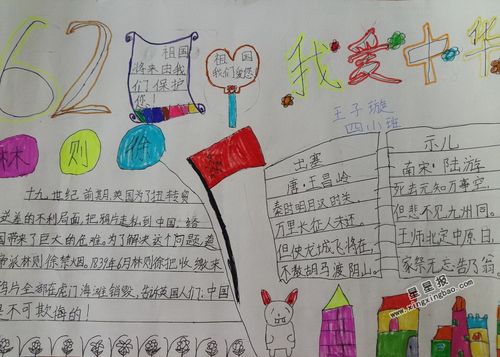 62
祖国
将来由我
们保护
您
祖国
我们爱您
我爱中华
王子璇
四小班
林则徐
十九世纪前期,英国为了扭转贸
逆差的不利局面,把鸦片走私到中国,给
国带来了巨大的危难。为了解决这个问题,道
帝派林则徐禁烟。1839年6月林则徐把收缴来
鸦片全部在虎门海滩销毁,告诉英国人们:中国
是不可欺悔的!
出塞
唐·王昌岭
秦时明月汉时关,
万里长征人未还。
但使龙城飞将在,
不教胡马渡阴山。
示儿
南宋·陆游
死去元知万事空,
但悲不见九州同。
王师北定中原日,
家祭无忘告乃翁
星星报
www.xingxingbao.com